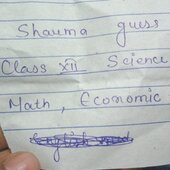 Shauma guess
Class XII Science
Math, Economic